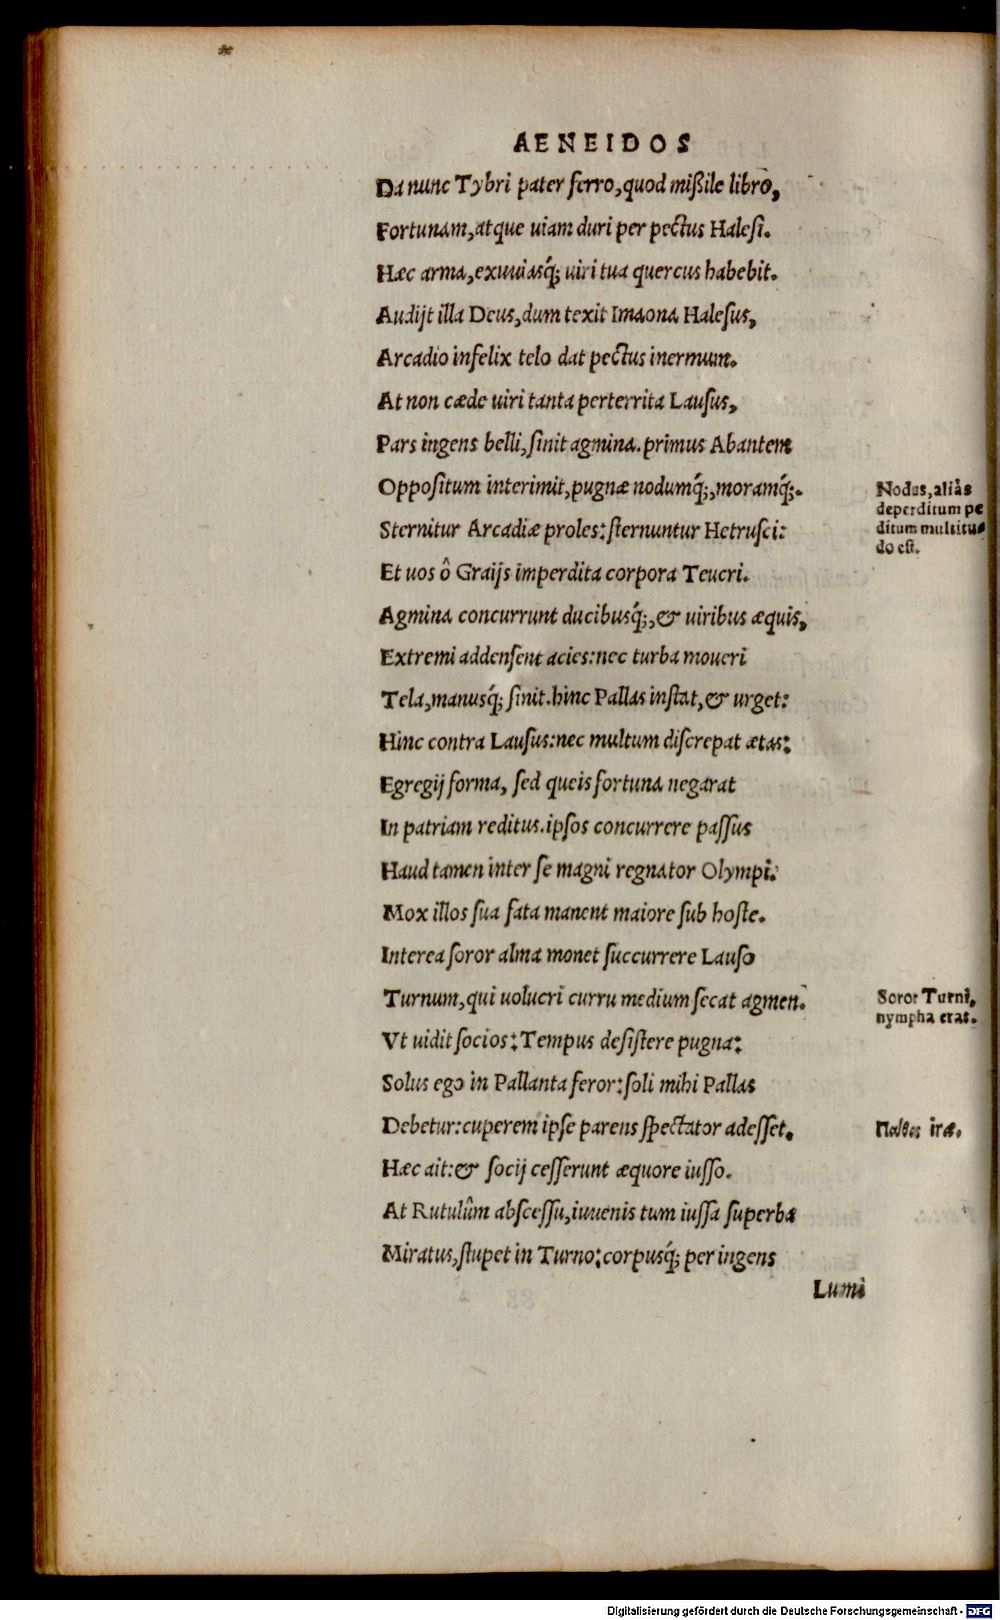 AENEIDOS
Da nunc Tybri pater ferro, quod mißile libro,
Fortunam, atque uiam duri per pectus Halesi.
Hæc arma, exuuiasq́; uiri tua quercus habebit.
Audijt illa Deus, dum texit Imaona Halesus,
Arcadio infelix telo dat pectus inermum.
At non cæde uiri tanta perterrita Lausus,
Pars ingens belli, sinit agmina. primus Abantem
Oppositum interimit, pugnæ nodumq́;, moramq́;.
Nodus, aliâs
deperditum pe
ditum multitu
do est.
Sternitur Arcadiæ proles: sternuntur Hetrusci:
Et uos ô Graijs imperdita corpora Teucri.
Agmina concurrunt ducibusq́;, & uiribus æquis,
Extremi addensent acies: nec turba moueri
Tela, manusq́; sinit. hinc Pallas instat, & urget:
Hinc contra Lausus: nec multum discrepat ætas:
Egregij forma, sed queis fortuna negarat
In patriam reditus. ipsos concurrere passus
Haud tamen inter se magni regnator Olympi.
Mox illos sua fata manent maiore sub hoste.
Interea soror alma monet succurrere Lauso
Turnum, qui uolucri curru medium secat agmen.
Soror Turni,
nympha erat.
Vt uidit socios: Tempus desistere pugna:
Solus ego in Pallanta feror: soli mihi Pallas
Debetur: cuperem ipse parens spectator adesset.
iræ.
Hæc ait: & socij cesserunt æquore iusso.
At Rutulûm abscessu, iuuenis tum iussa superba
Miratus, stupet in Turno: corpusq́; per ingens
Lumi
Digitalisierung gefördert durch die Deutsche Forschungsgemeinschaft - DFG